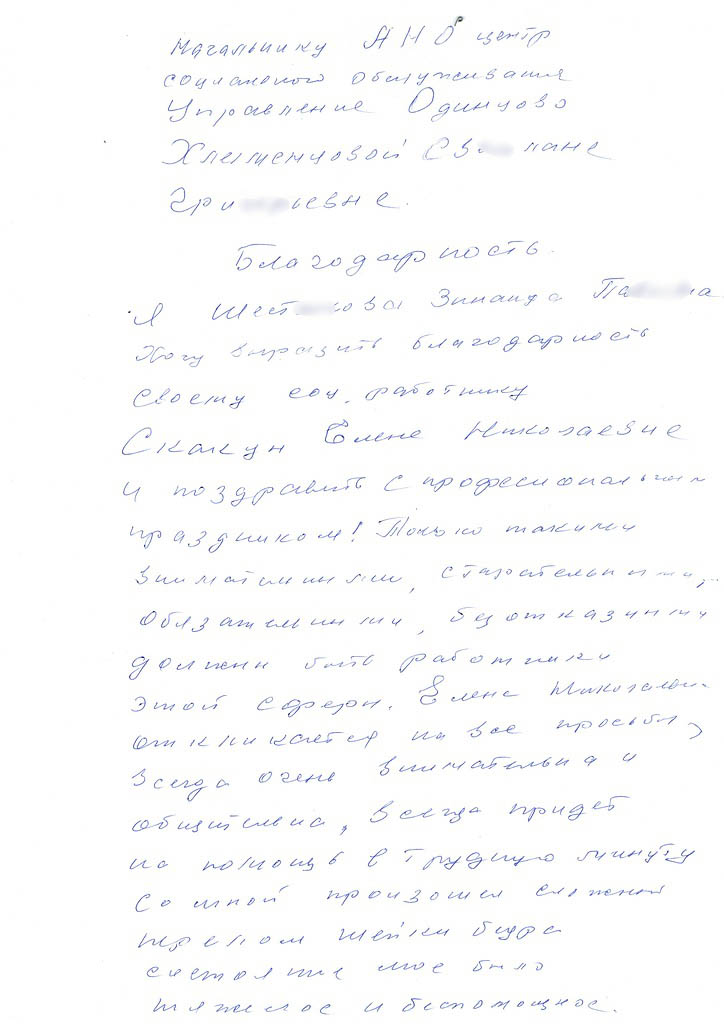 Начальнику АНО центр
социального обслуживания
Управление Одинцово
Св лане
Гри ьевне.
Благодарность.
Я Шест кова Зинаида Па на
Хочу выразить благодарность
своему соц. работнику
Скакун Елене Николаевне
и поздравить с профессиональным
праздником! Только такими
внимательными, старательными,
обязательными, безотказными
должны быть работники
этой сферы. Елена Николаевна
откликается на все просьбы,
всегда очень внимательна и
общительна, всегда придет
на помощь в трудную минуту
Со мной произошел сложный
перелом шейки бедра
состояние мое было
тяжелое и беспомощное.